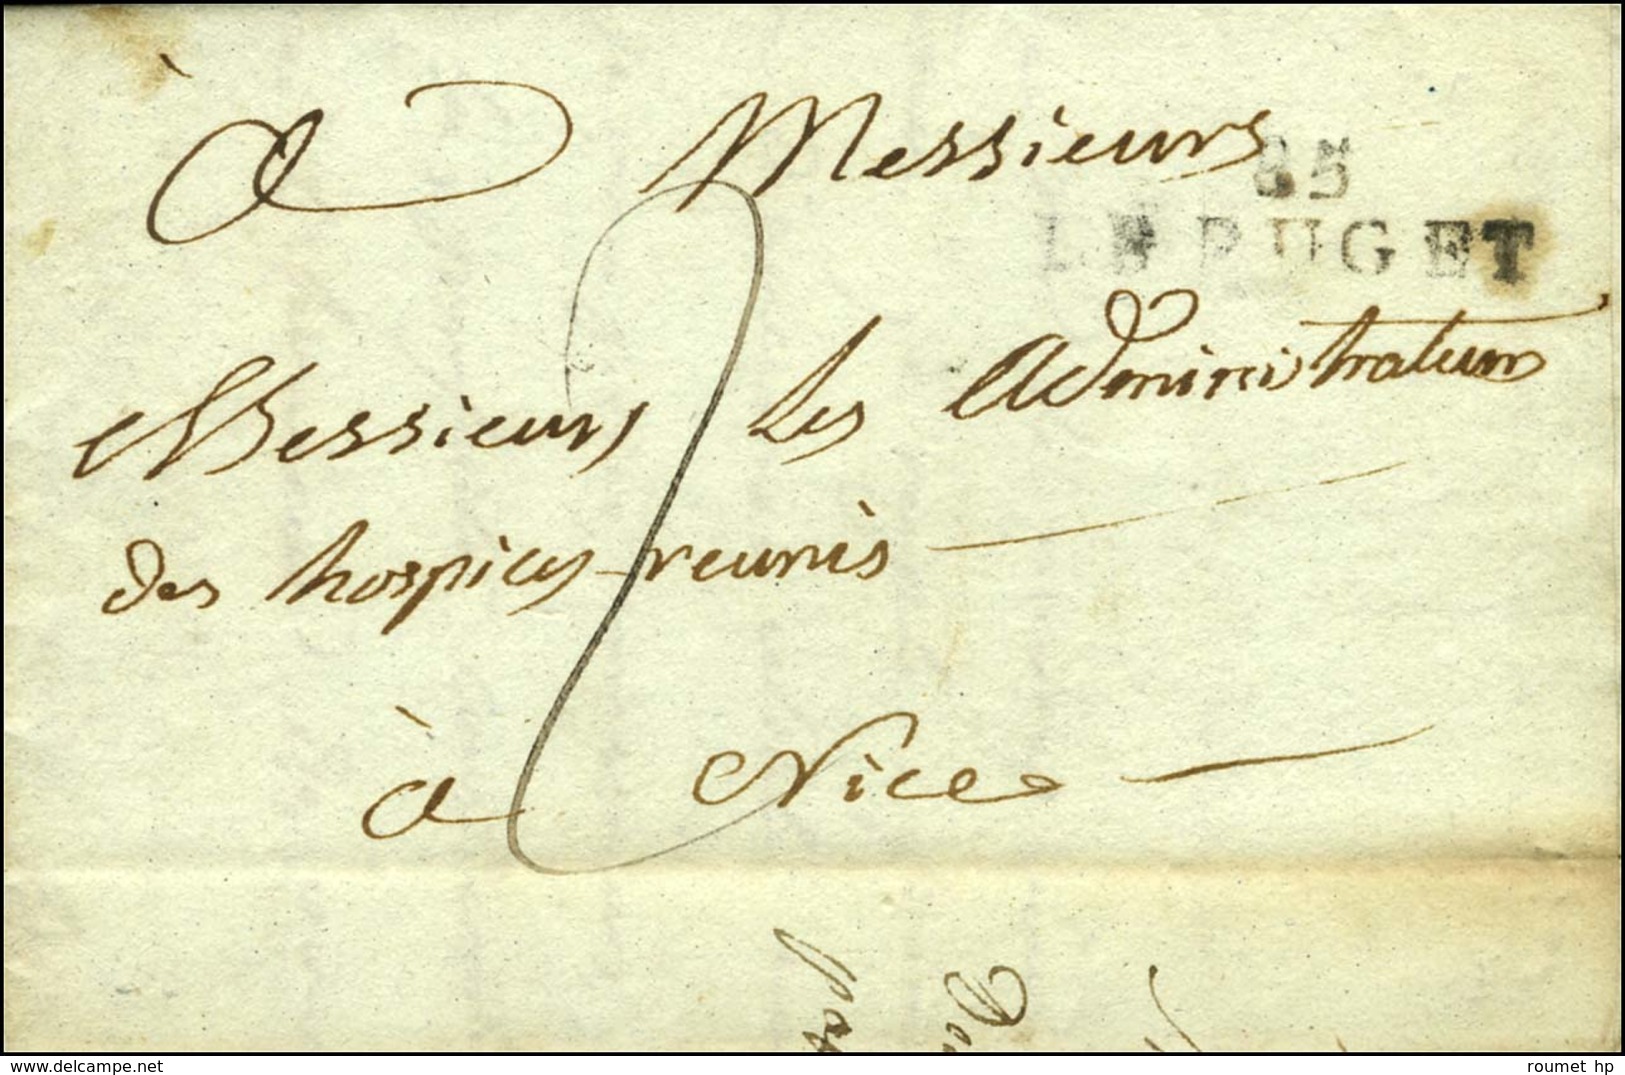 à Messieurs
85
LE PUGET
Messieurs les Administrateurs
des hospices reunis
à Nice
2
www.delcampe.net
roumet hp